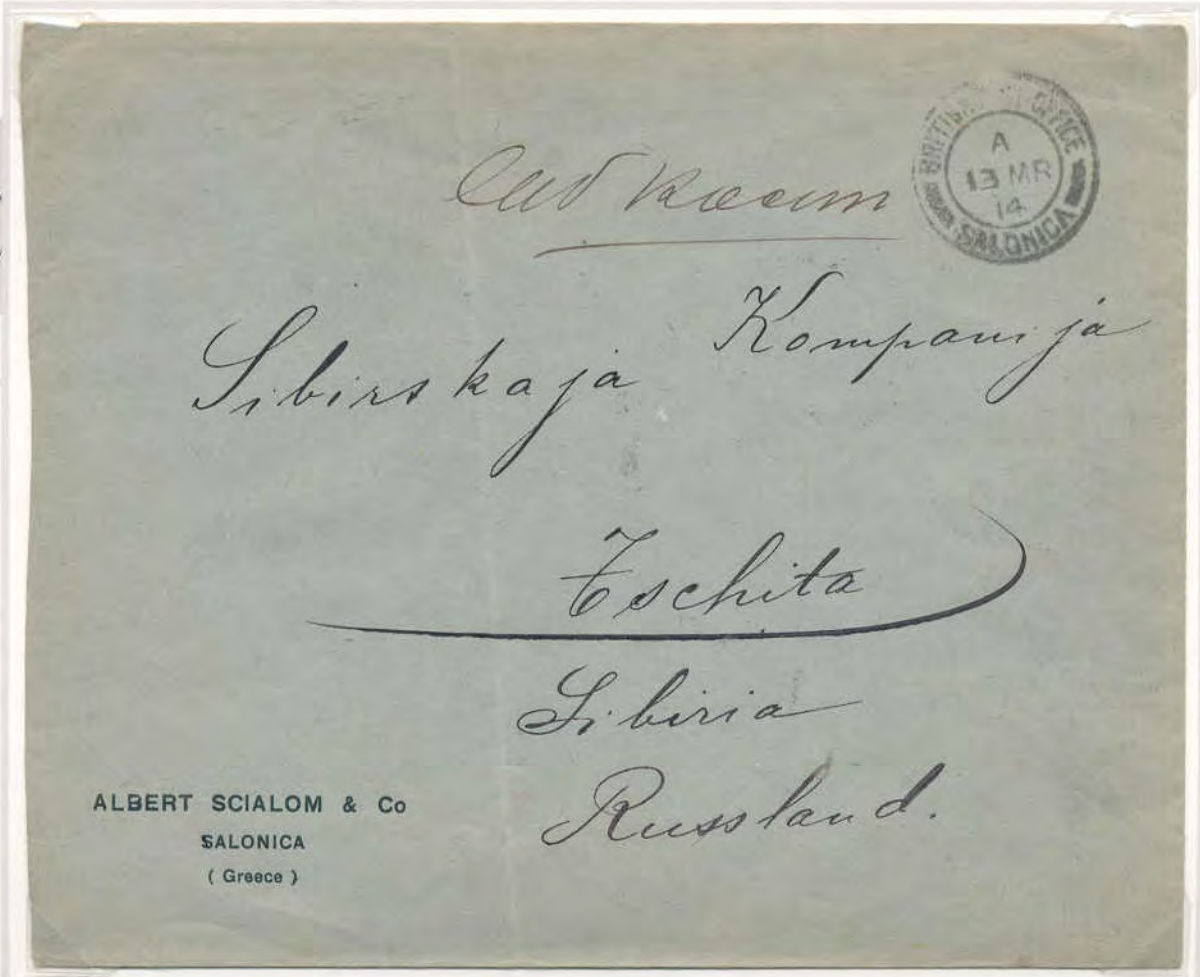 BRITISH POST OFFICE
A
13 MR
14
SALONICA
Sibirskaja Kompanija
Tschita
Sibiria
Russland.
ALBERT SCIALOM & Co
SALONICA
( Greece )